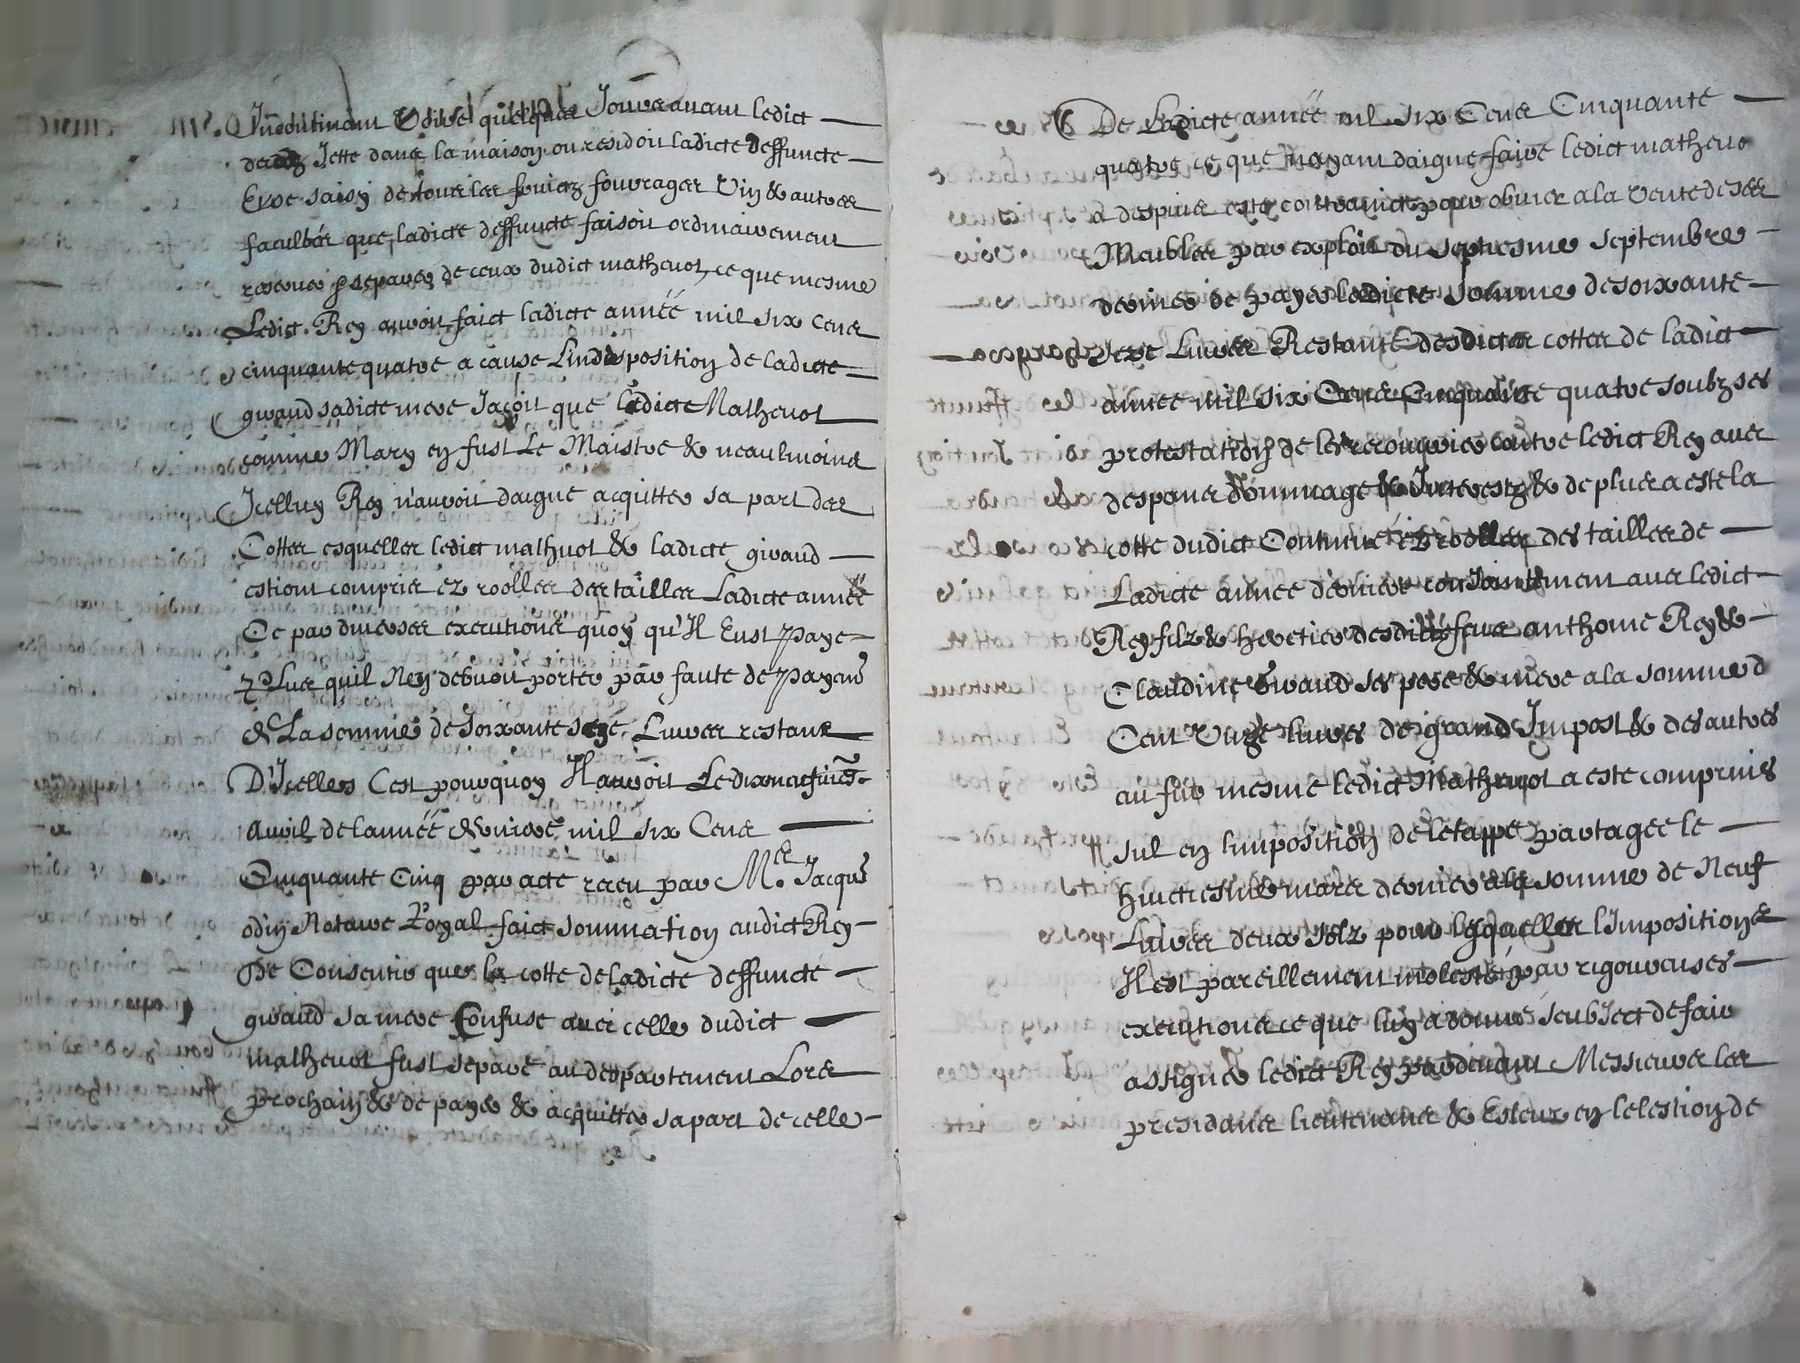 quelques Jours avant ledict
dans la maison ou residoit ladicte deffuncte
saisy de tous les fouragez Vin & autres
facultés que ladicte deffuncte faisoit ordinairement
reserver & separer de ceux dudict mathenot, ce que mesme
Ledict Rey auroit faict ladicte année mil six cens
cinquante quatre a cause Lindisposition de ladicte
giraud sadicte mere Jaçoit que ledict Mathenot
comme Mary en fust Le Maistre & neaulmoins
Icelluy Rey n'auroit daigné acquitter sa part des
Cottes esquelles ledict mathnot & ladicte giraud
estiont compris ez roolles des tailles Ladicte année
Ce par diverses executions quoy qu'Il Eust paye
Plus quil N'en debvoit porter par faute de payem
La somme de Soixante seze Livres restans
D'Icelles C'est pourquoy Il auroit Le dixneufuie
Avril de lannéé derniere mil six Cens
Cinquante Cinq par acte receu par Me. Jacques
odin Notaire Royal faict sommation audict Rey
De Consentir que la cotte de ladicte deffuncte
giraud sa mere Confuse avec celle dudict
mathenot fust separé au despartement Lors
prochain & de payer & acquitter sa part de celle
De Ladicte année mil six Cens Cinquante
quatre ce que nayant daigné faire ledict mathenot
a despuis esté contrainct pour obvier a la Vente de ses
Meubles par exploit du septiesme septembre
dernier de payer ladicte somme de soixante
seze Livres Restants desdictes cottes de ladict
année mil six Cens Cinquante quatre soubz ses
protestations de les recouvrer contre ledict Rey avec
despans dommages & Interestz & de plus a esté la
cotte dudict Continué ez roolles des tailles de
Ladicte année derniere conJointement avec ledict
Rey filz & heretier desdictz feus anthoine Rey &
Claudine Giraud ses pere & mere a la somme d
Cent Unze livres de grand Impost & des autres
au fur mesme ledict Mathenot a esté comprins
sul en limposition de letappe partagée le
huictiesme mars dernier a la somme de Neuf
Livres deux solz pour lesquelles Impositions
Il est pareillement molesté par rigoureuses
executions ce que luy a donné subJect de faire
assigner ledict Rey pardevant Messieurs les
presidans lieutenans & Esleuz en lelection de